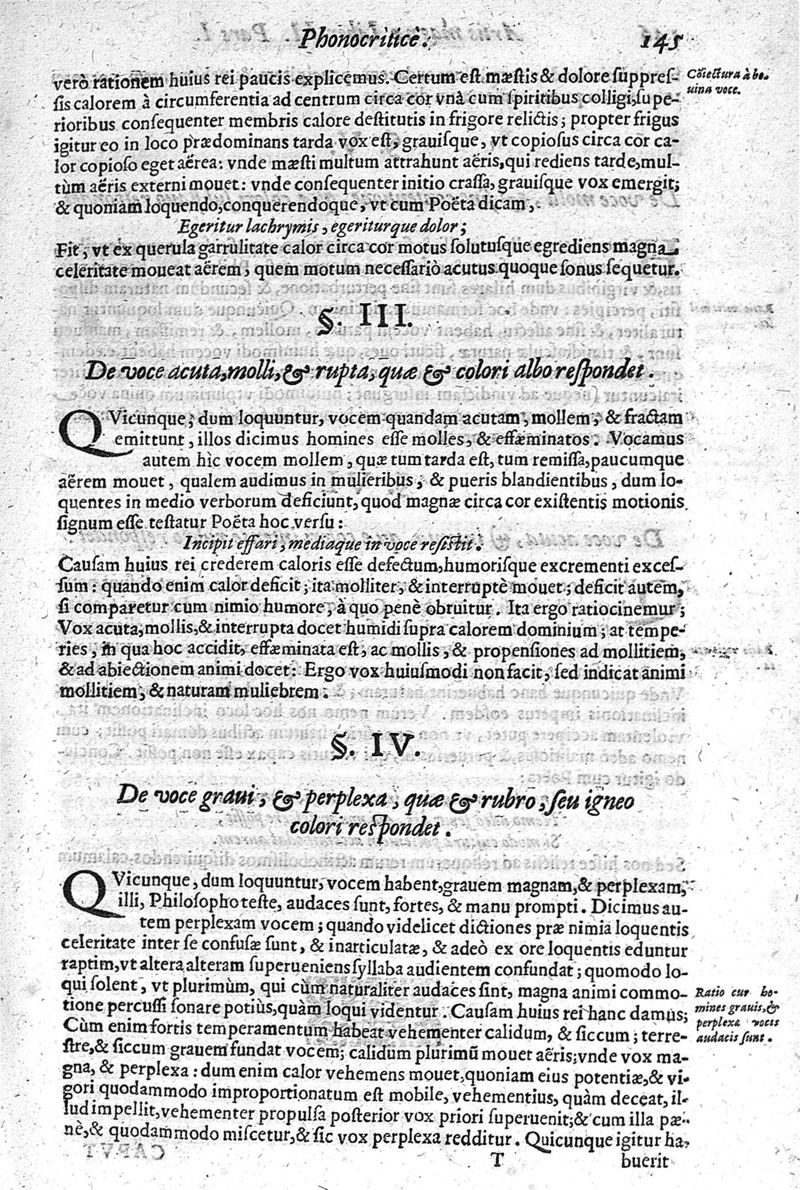 Phonocriticè. 145
verò rationem huius rei paucis explicemus. Certum est mæstis & dolore suppres-
sis calorem à circumferentia ad centrum circa cor vnà cum spiritibus colligi, supe-
rioribus consequenter membris calore destitutis in frigore relictis; propter frigus
igitur eo in loco prædominans tarda vox est, grauisque, vt copiosus circa cor ca-
lor copioso eget aërea: vnde mæsti multum attrahunt aëris, qui rediens tarde, mul-
tùm aëris externi mouet: vnde consequenter initio crassa, grauisque vox emergit;
& quoniam loquendo, conquerendoque, vt cum Poëta dicam,
Egeritur lachrymis, egeriturque dolor;
Fit, vt ex querula garrulitate calor circa cor motus solutusque egrediens magna
celeritate moueat aërem, quem motum necessariò acutus quoque sonus sequetur.
Cõiectura à bo-
uina voce.
§. III.
De voce acuta, molli, & rupta, quæ & colori albo respondet.
QVicunque, dum loquuntur, vocem quandam acutam, mollem, & fractam
emittunt, illos dicimus homines esse molles, & effæminatos. Vocamus
autem hìc vocem mollem, quæ tum tarda est, tum remissa, paucumque
aërem mouet, qualem audimus in mulieribus, & pueris blandientibus, dum lo-
quentes in medio verborum deficiunt, quod magnæ circa cor existentis motionis
signum esse testatur Poëta hoc versu:
Incipit effari, mediaque in voce resistit.
Causam huius rei crederem caloris esse defectum, humorisque excrementi exces-
sum: quando enim calor deficit, ita molliter, & interruptè mouet; deficit autem,
si comparetur cum nimio humore, à quo penè obruitur. Ita ergo ratiocinemur;
Vox acuta, mollis, & interrupta docet humidi supra calorem dominium; at tempe-
ries, in qua hoc accidit, effæminata est, ac mollis, & propensiones ad mollitiem,
& ad abiectionem animi docet: Ergo vox huiusmodi non facit, sed indicat animi
mollitiem, & naturam muliebrem.
§. IV.
De voce graui, & perplexa, quæ & rubro, seu igneo
colori respondet.
QVicunque, dum loquuntur, vocem habent, grauem magnam, & perplexam,
illi, Philosopho teste, audaces sunt, fortes, & manu prompti. Dicimus au-
tem perplexam vocem; quando videlicet dictiones præ nimia loquentis
celeritate inter se confusæ sunt, & inarticulatæ, & adeò ex ore loquentis eduntur
raptim, vt altera alteram superueniens syllaba audientem confundat; quomodo lo-
qui solent, vt plurimùm, qui cùm naturaliter audaces sint, magna animi commo-
tione percussi sonare potiùs, quàm loqui videntur. Causam huius rei hanc damus;
Cùm enim fortis temperamentum habeat vehementer calidum, & siccum; terre-
stre, & siccum grauem fundat vocem; calidum plurimũ mouet aëris; vnde vox ma-
gna, & perplexa: dum enim calor vehemens mouet, quoniam eius potentiæ, & vi-
gori quodammodo improportionatum est mobile, vehementius, quàm deceat, il-
lud impellit, vehementer propulsa posterior vox priori superuenit; & cum illa pæ-
nè, & quodammodo miscetur, & sic vox perplexa redditur. Quicunque igitur ha-
Ratio cur ho-
mines grauis, &
perplexa vocis
audacis sunt.
T buerit